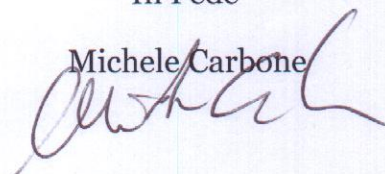 In Fede
Michele Carbone